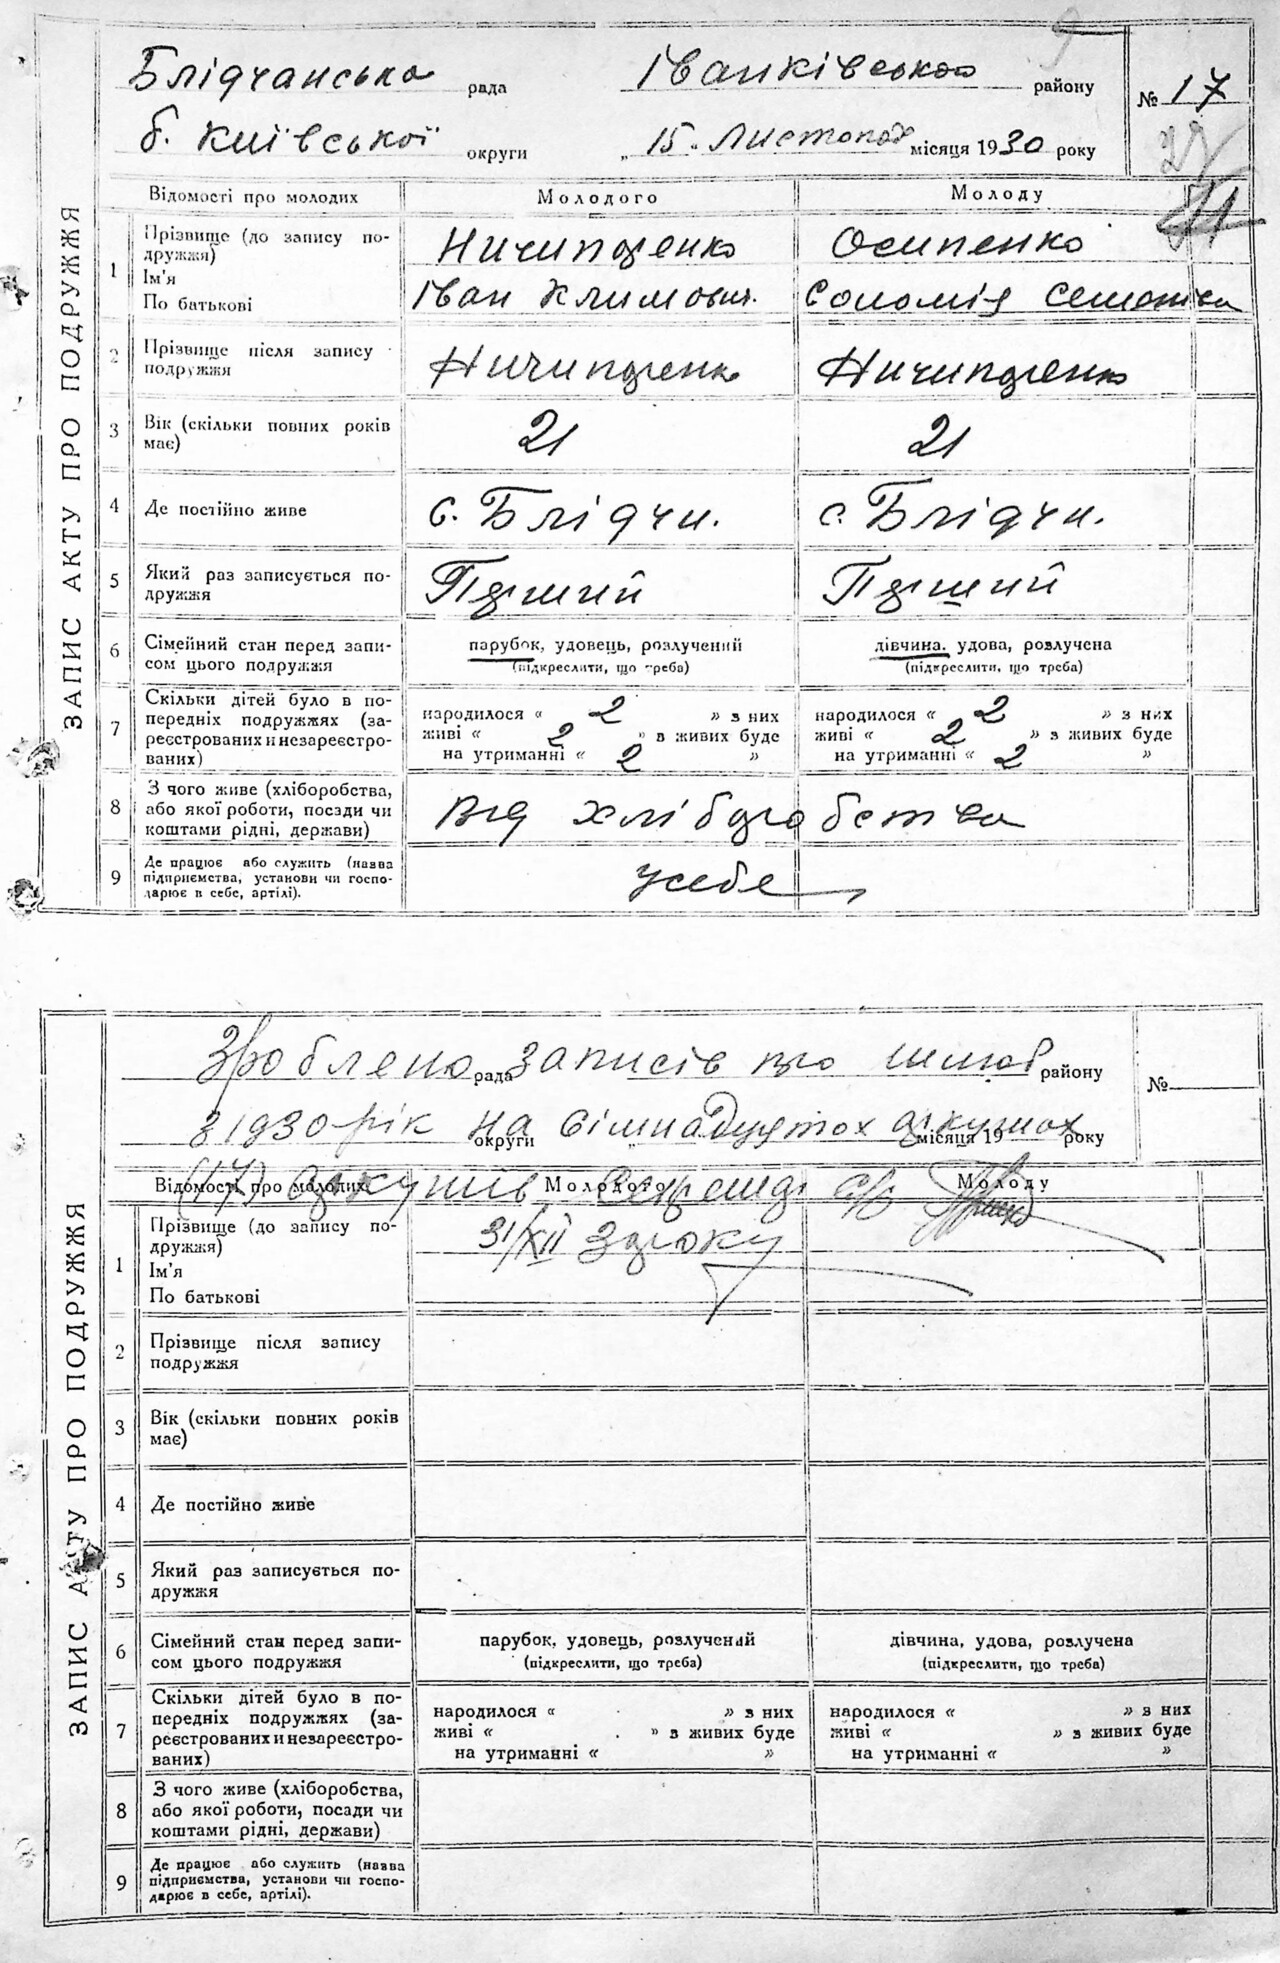 Блідчанська рада Іванківського району № 17
б. Київської округи „ 15 „ Листопад місяця 1930 року
ЗАПИС АКТУ ПРО ПОДРУЖЖЯ
Відомості про молодих Молодого Молоду
1 Прізвище (до запису по-
дружжя) Ничипоренко Осипенко
Ім'я
По батькові Іван Климович. Соломія Семенівна
2 Прізвище після запису
подружжя Ничипоренко Ничипоренко
3 Вік (скільки повних років
має) 21 21
4 Де постійно живе с. Блідчи. с. Блідчи.
5 Який раз записується по-
дружжя Перший Перший
6 Сімейний стан перед запи-
сом цього подружжя парубок, удовець, розлучений дівчина, удова, розлучена
(підкреслити, що треба) (підкреслити, що треба)
7 Скільки дітей було в по-
передніх подружжях (за-
реєстрованих и незареєстро-
ваних)
народилося « 2 » з них народилося « 2 » з них
живі « 2 » з живих буде живі « 2 » з живих буде
на утриманні « 2 » на утриманні « 2 »
8 З чого живе (хліборобства,
або якої роботи, посади чи
коштами рідні, держави) від хліборобства
9 Де працює або служить (назва
підприємства, установи чи госпо-
дарює в себе, артілі). у себе
Зроблено рада записів про шлюб району №
з 1930 рік округи на Сімнадцятох аркушах місяця 19 року
ЗАПИС АКТУ ПРО ПОДРУЖЖЯ
Відомості про молодих (17) аркушів Молодого с/р Молоду
1 Прізвище (до запису по-
дружжя) 31/XII 30 року
Ім'я
По батькові
2 Прізвище після запису
подружжя
3 Вік (скільки повних років
має)
4 Де постійно живе
5 Який раз записується по-
дружжя
6 Сімейний стан перед запи-
сом цього подружжя парубок, удовець, розлучений дівчина, удова, розлучена
(підкреслити, що треба) (підкреслити, що треба)
7 Скільки дітей було в по-
передніх подружжях (за-
реєстрованих и незареєстро-
ваних)
народилося « » з них народилося « » з них
живі « » з живих буде живі « » з живих буде
на утриманні « » на утриманні « »
8 З чого живе (хліборобства,
або якої роботи, посади чи
коштами рідні, держави)
9 Де працює або служить (назва
підприємства, установи чи госпо-
дарює в себе, артілі).